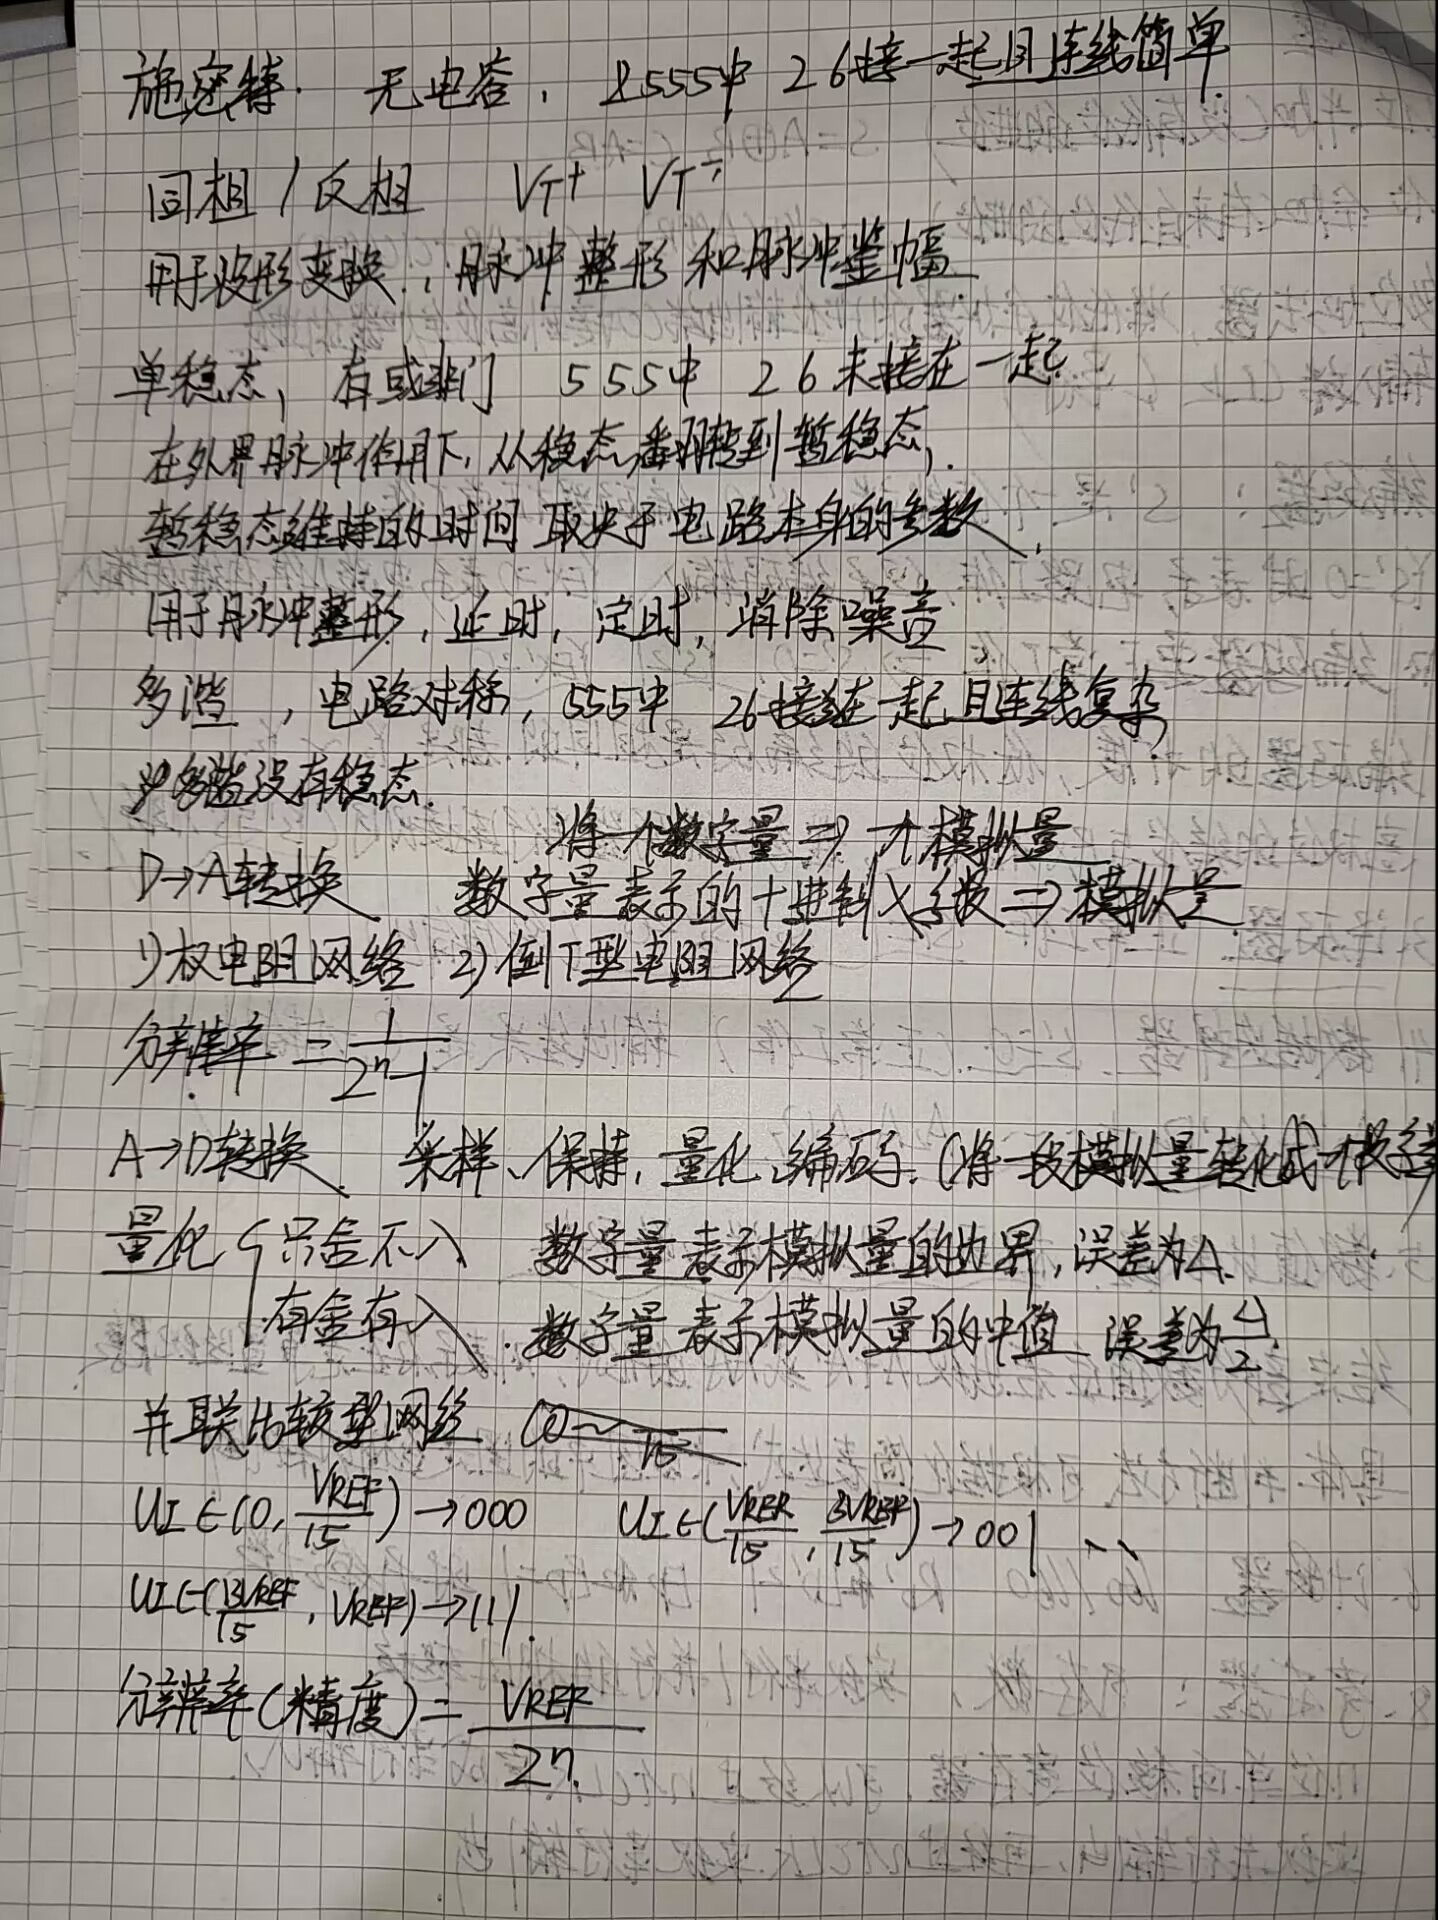 施密特. 无电容, 且555中 26接一起且连线简单.
同相/反相 VT+ VT-
用于波形变换, 脉冲整形和脉冲鉴幅.
单稳态, 有或非门 555中 26未接在一起.
在外界脉冲作用下, 从稳态翻转到暂稳态,
暂稳态维持的时间取决于电路本身的参数.
用于脉冲整形, 延时, 定时, 消除噪音
多谐, 电路对称, 555中 26接在一起且连线复杂,
多谐没有稳态.
将一个数字量⇒一个模拟量
D→A转换 数字量表示的十进制×级⇒模拟量
1)权电阻网络 2)倒T型电阻网络
分辨率=1/(2ⁿ-1)
A→D转换. 采样、保持, 量化、编码. (将一段模拟量转化成一个数字量
量化{只舍不入 数字量表示模拟量的边界, 误差为Δ.
有舍有入. 数字量表示模拟量的中值 误差为Δ/2.
并联比较型网络
UI∈(0, VREF/15)→000 UI∈(VREF/15, 3VREF/15)→001 ...
UI∈(13VREF/15, VREF)→111.
分辨率(精度)=VREF/2ⁿ.